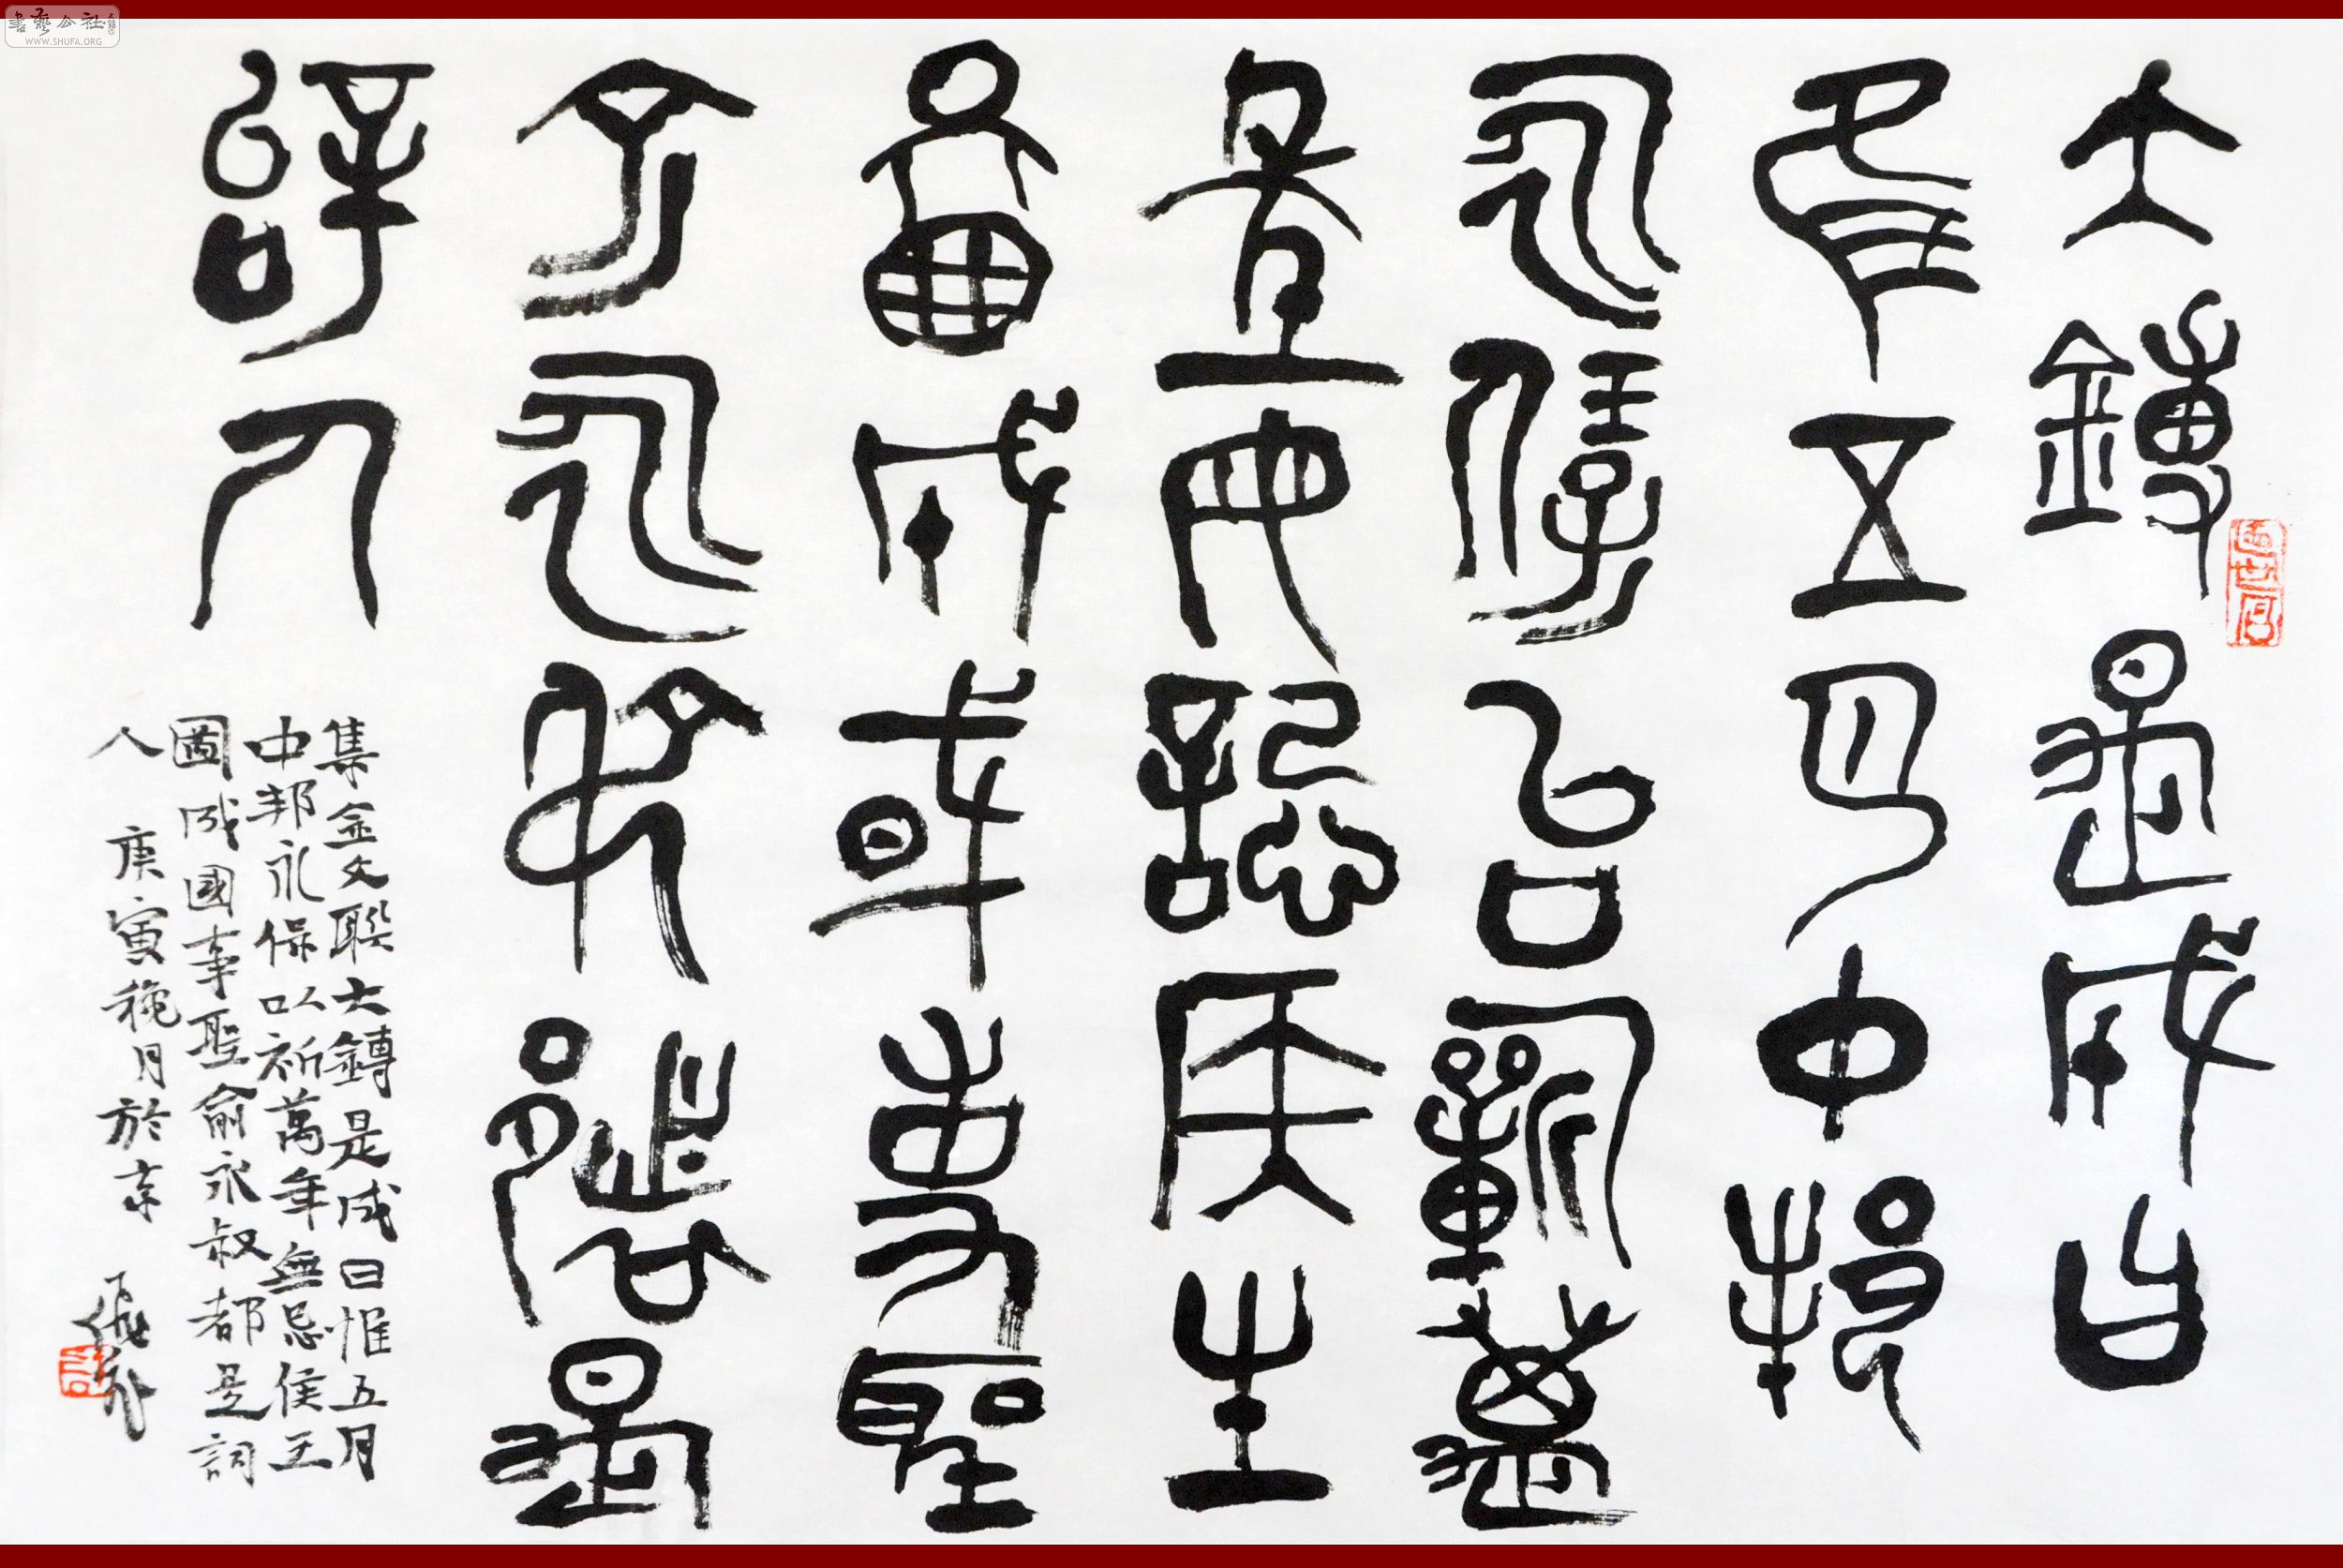 大鎛是成曰
隹五月中邦
永保台祈萬
年無忌侯王
圖成國事聖
俞永叔都是
詞人
集金文聯大鎛是成曰惟五月
中邦永保以祈萬年無忌侯王
圖成國事聖俞永叔都是詞
人 庚寅穐月於京
書藝公社
WWW.SHUFA.ORG